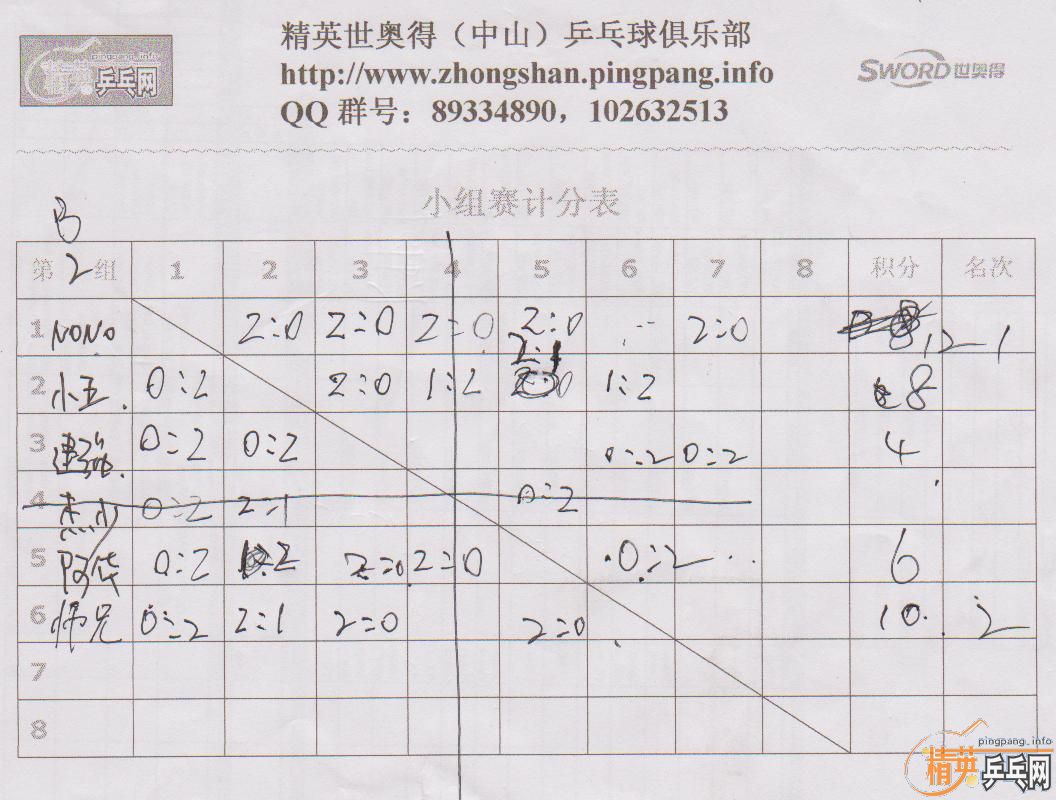 pingpang.info
精英乒乓网
精英世奥得（中山）乒乓球俱乐部
http://www.zhongshan.pingpang.info
QQ 群号：89334890，102632513
SWORD世奥得
小组赛计分表
B
第 2 组 1 2 3 4 5 6 7 8 积分 名次
1 NONO 2:0 2:0 2:0 2:0 2:0 12 1
2:1
2 小五 0:2 2:0 1:2 1:2 8
3 建强 0:2 0:2 0:2 0:2 4
4 0:2 2:1 0:2
5 阿华 0:2 2:0 2:0 0:2 6
6 师兄 0:2 2:1 2:0 2:0 10 2
7
8
pingpang.info
精英乒乓网